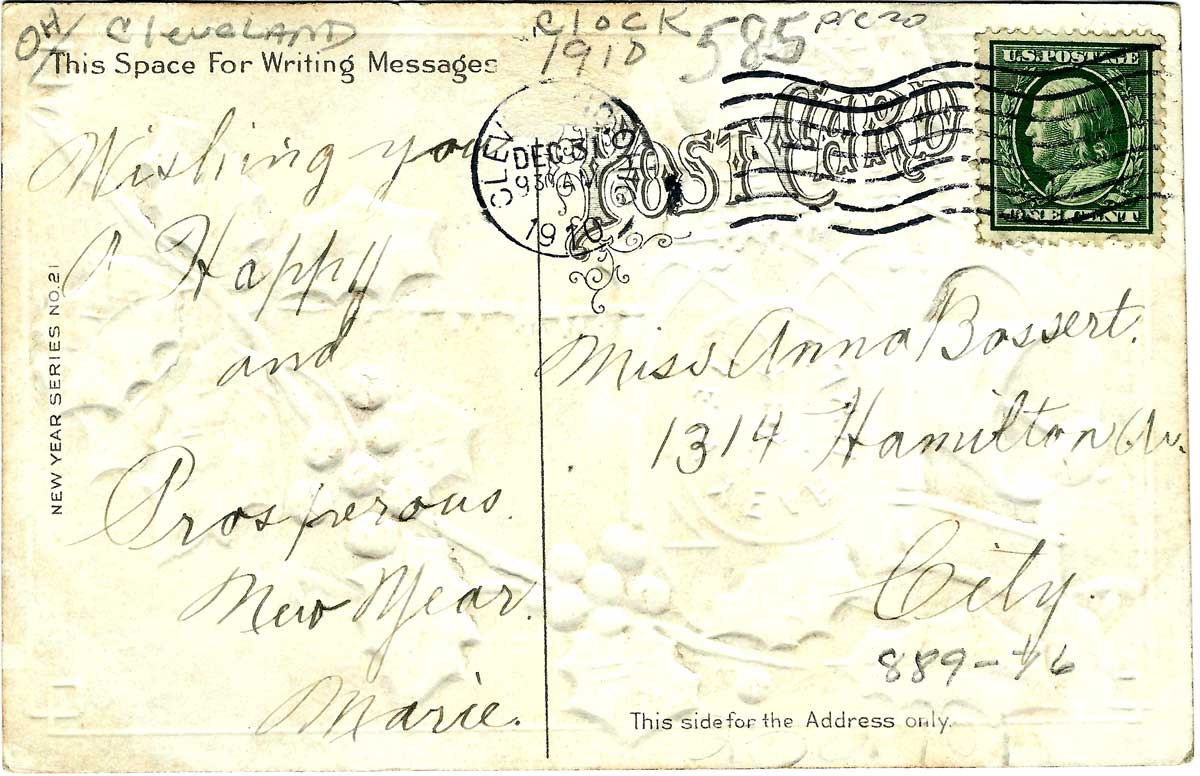 OH/ Cleveland
Clock
1910
585
pre 20
This Space For Writing Messages
U.S. POSTAGE
ONE CENT
CLEV
DEC 31
930 AM
1910
OHIO
POST CARD
NEW YEAR SERIES NO. 21
Wishing you
a Happy
and
Prosperous
New Year.
Marie.
Miss Anna Bossert.
1314 Hamilton Av.
City.
This side for the Address only.